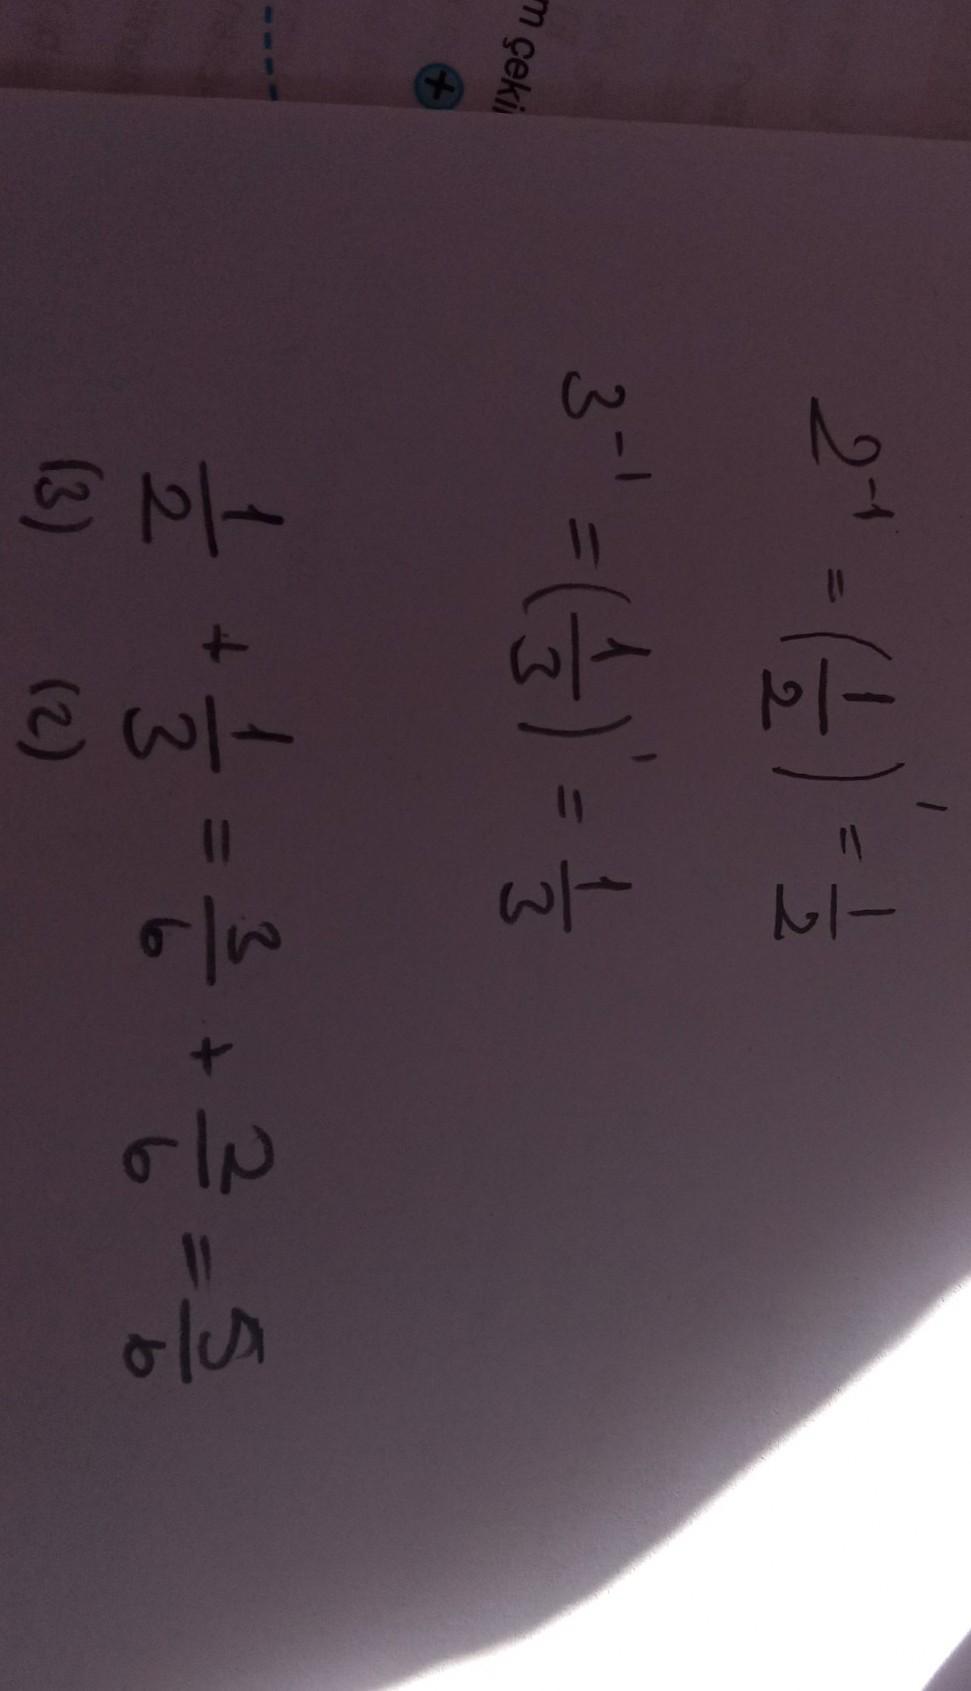 m çeki
+
2⁻¹ = (1/2)¹ = 1/2
3⁻¹ = (1/3)¹ = 1/3
1/2 + 1/3 = 3/6 + 2/6 = 5/6
(3) (2)